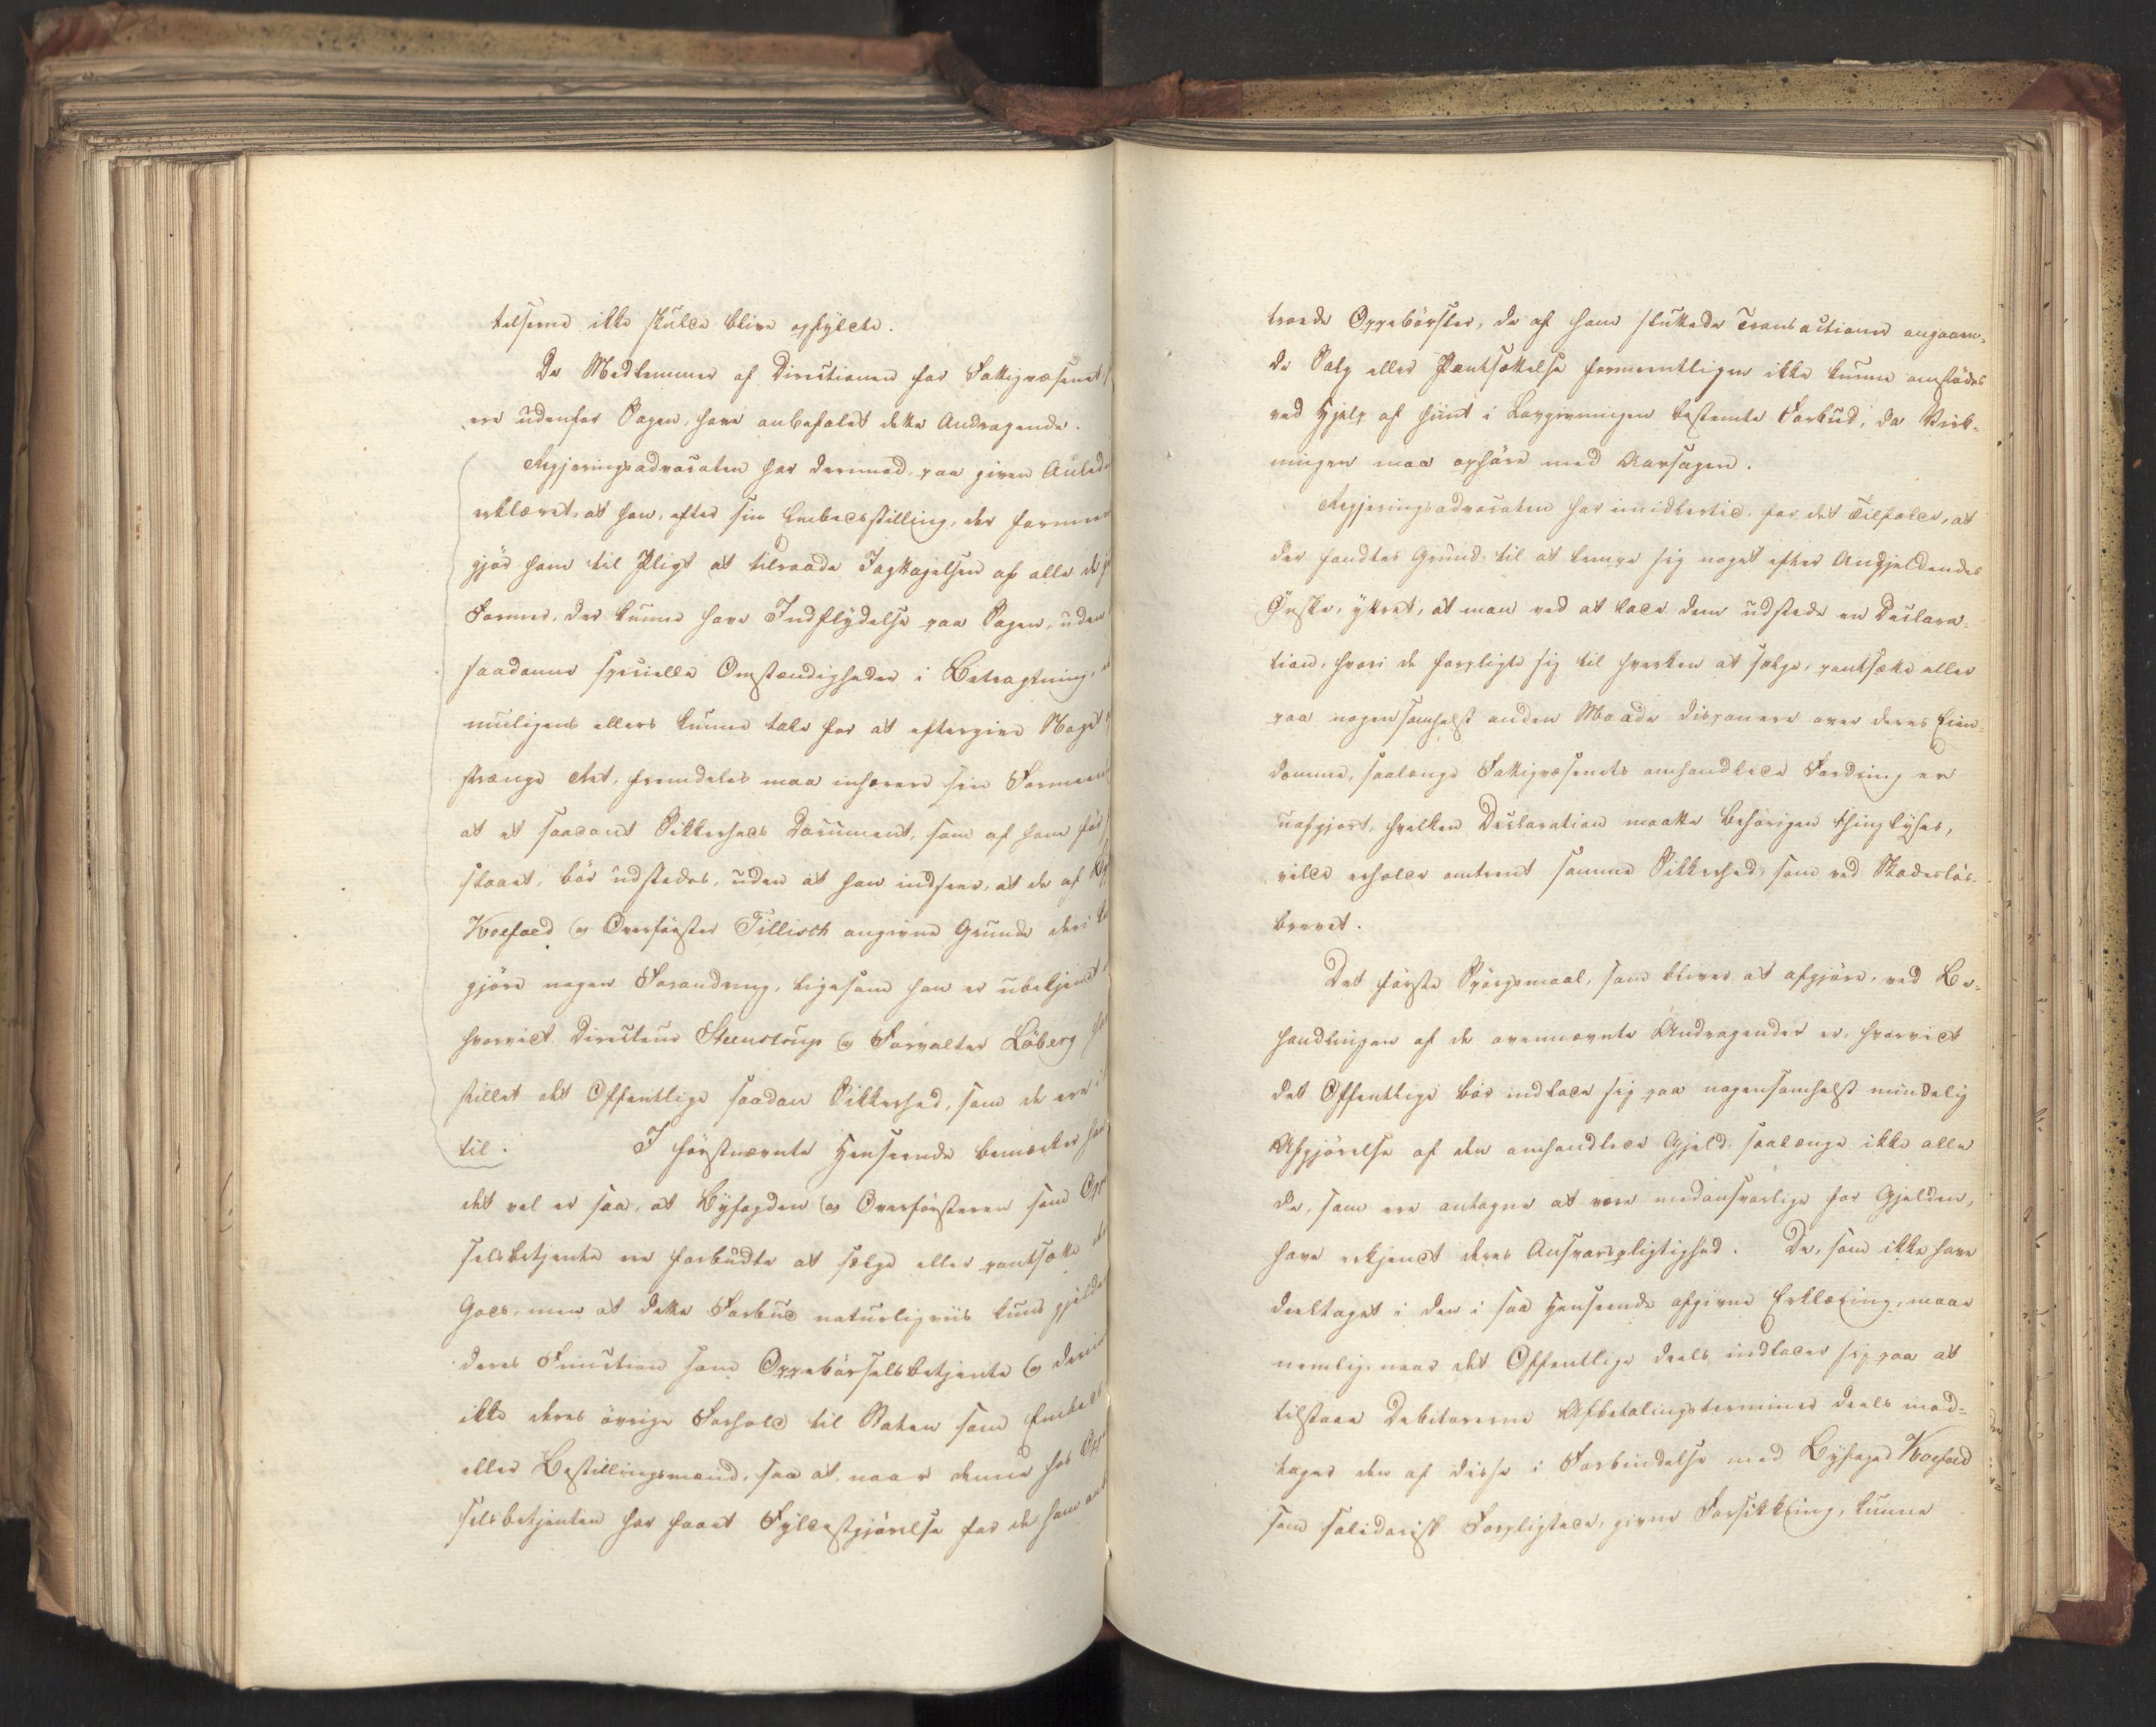 telserne ikke skulde blive opfyldte.
De Medlemmer af Directionen for Fattigvæsenet
ere udenfor Sagen, have anbefalet dette Andragende.
Regjeringsadvocaten har derimod, paa given Anled
erklæret, at han, efter sin Embedsstilling, der formeen
gjør ham til Pligt at tilraade Iagttagelsen af alle de
Former, der kunne have Indflydelse paa Sagen, uden
saadanne specielle Omstændigheder i Betragtning,
muligens ellers kunne tale for at eftergive Noget
strænge Ret, fremdeles maa inhærere sin Formeen
at et saadant Sikkerheds Document, som af ham før
staaet, bør udstedes, uden at han indseer, at de af
Koefoed og Overførster Tillisch angivne Grunde deri
gjøre nogen Forandring, ligesom han er ubekjendt,
hvorvidt Directeur Steenstrup og Forvalter Løberg
stillet det Offentlige saadan Sikkerhed, som de ere
til. I førstnævnte Henseende bemærker han
det vel er saa, at Byfogden og Overførsteren som Opp
selsbetjente ere forbudte at sælge eller pantsætte
Gods, men at dette Forbud naturligviis kuns gjelder
deres Function som Oppebørselsbetjente og
ikke deres øvrige Forhold til Staten som Embeds
eller Bestillingsmænd, saa at, naar denne hos
selsbetjenten har faaet Fyldestgjørelse for de ham
troede Oppebørsler, de af ham sluttede Transactioner angaaen-
de Salg eller Pantsættelse formeentligen ikke kunne omstødes
ved Hjelp af hiint i Lovgivningen bestemte Forbud, da Virk-
ningen maa ophøre med Aarsagen.
Regjeringsadvocaten har imidlertid, for det Tilfælde, at
der fandtes Grund til at lempe sig noget efter Angjeldendes
Ønske, yttret, at man ved at lade dem udstede en Declara-
tion, hvori de forpligte sig til hverken at sælge, pantsætte eller
paa nogensomhelst anden Maade disponere over deres Eien-
domme, saalænge Fattigvæsenets omhandlede Fordring er
uafgjort, hvilken Declaration maatte behørigen thinglyses,
vilde erholde omtrent samme Sikkerhed, som ved Skadesløs-
brevet.
Det første Spørgsmaal, som bliver at afgjøre, ved Be-
handlingen af de ovennævnte Andragender er, hvorvidt
det Offentlige bør indlade sig paa nogensomhelst mindelig
Afgjørelse af den omhandlede Gjeld, saalænge ikke alle
de, som ere antagne at være medansvarlige for Gjelden,
have erkjendt deres Ansvarspligtighed. De, som ikke have
deeltaget i den i saa Henseende afgivne Erklæring, maae
nemlig, naar det Offentlige deels indlader sig paa at
tilstaae Debitorerne Afbetalingsterminer deels mod-
tager den af disse i Forbindelse med Byfoged Koefoed
som solidarisk Forpligtede, givne Forsikkring, kunne